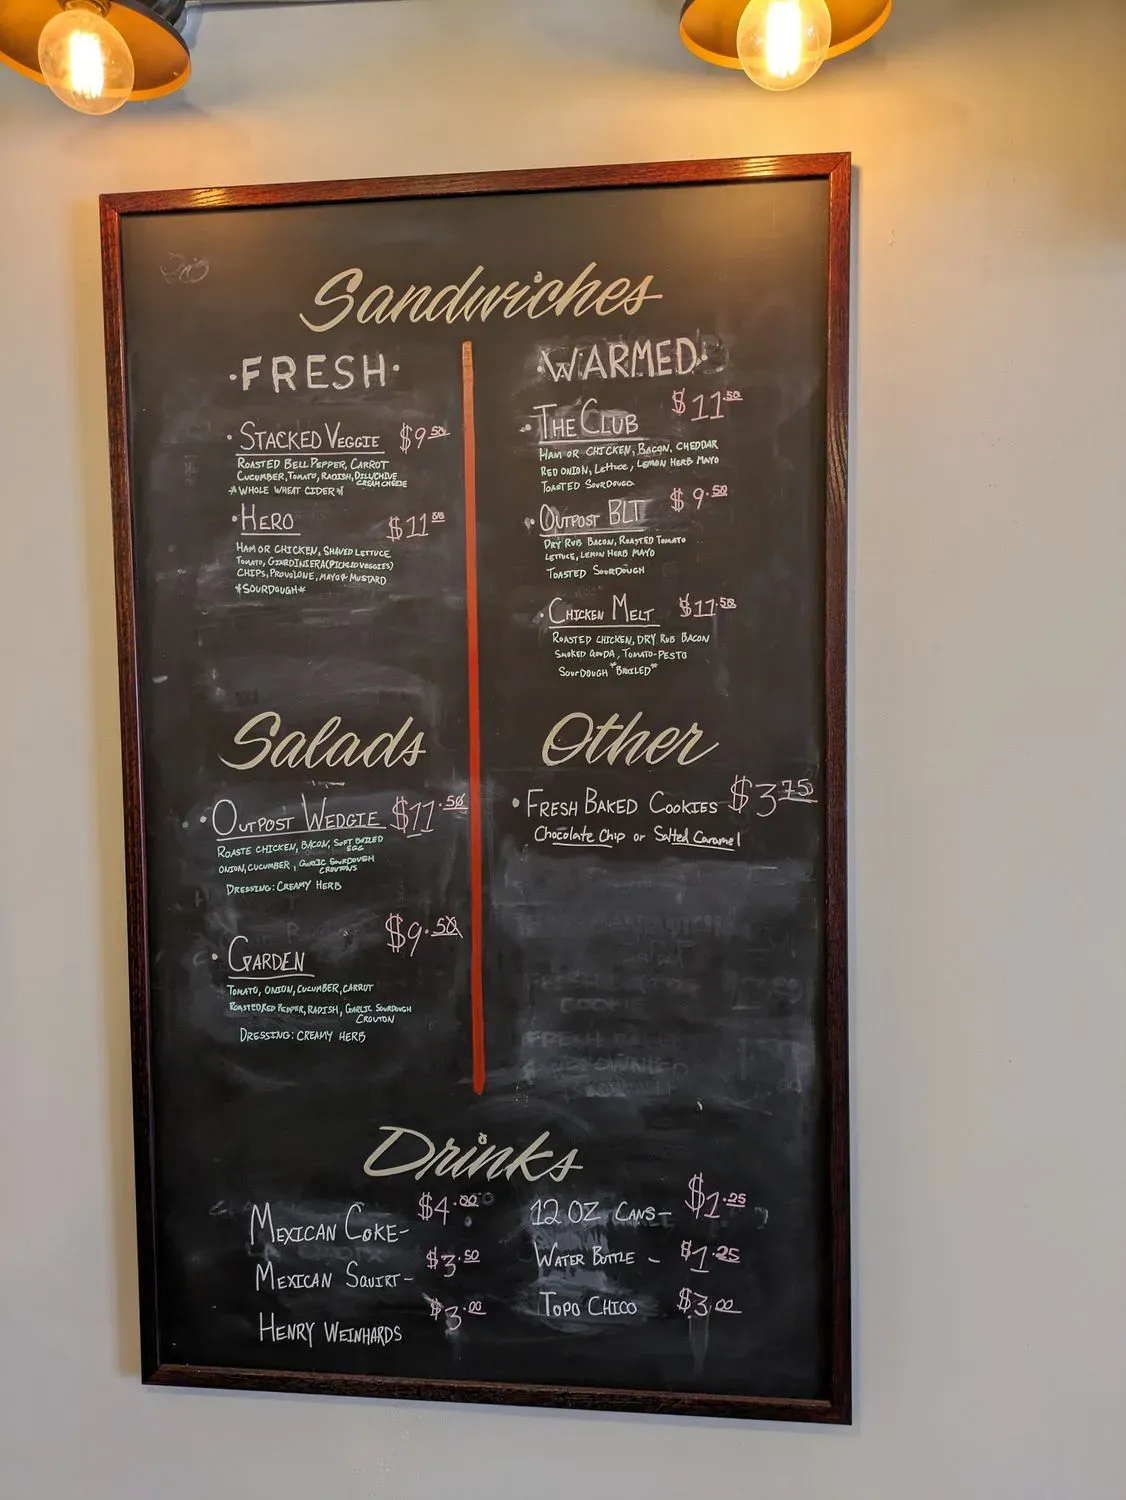 Sandwiches
·FRESH·
· STACKED VEGGIE $9.50
ROASTED BELL PEPPER, CARROT
CUCUMBER, TOMATO, RADISH, DILL/CHIVE
CREAM CHEESE
*WHOLE WHEAT CIDER*
· HERO $11.50
HAM OR CHICKEN, SHAVED LETTUCE
TOMATO, GIARDINIERA (PICKLED VEGGIES)
CHIPS, PROVOLONE, MAYO & MUSTARD
*SOURDOUGH*
·WARMED·
· THE CLUB $11.50
HAM OR CHICKEN, BACON, CHEDDAR
RED ONION, LETTUCE, LEMON HERB MAYO
TOASTED SOURDOUGH
· OUTPOST BLT $9.50
DRY RUB BACON, ROASTED TOMATO
LETTUCE, LEMON HERB MAYO
TOASTED SOURDOUGH
· CHICKEN MELT $11.50
ROASTED CHICKEN, DRY RUB BACON
SMOKED GOUDA, TOMATO-PESTO
SOURDOUGH *BROILED*
Salads
· OUTPOST WEDGIE $11.50
ROASTE CHICKEN, BACON, SOFT BOILED
EGG
ONION, CUCUMBER, GARLIC SOURDOUGH
CROUTONS
DRESSING: CREAMY HERB
· GARDEN $9.50
TOMATO, ONION, CUCUMBER, CARROT
ROASTED RED PEPPER, RADISH, GARLIC SOURDOUGH
CROUTON
DRESSING: CREAMY HERB
Other
· FRESH BAKED COOKIES $3.75
Chocolate Chip or Salted Caramel
Drinks
MEXICAN COKE- $4.00
MEXICAN SQUIRT- $3.50
HENRY WEINHARDS $3.00
12 OZ CANS- $1.25
WATER BOTTLE - $1.25
TOPO CHICO $3.00